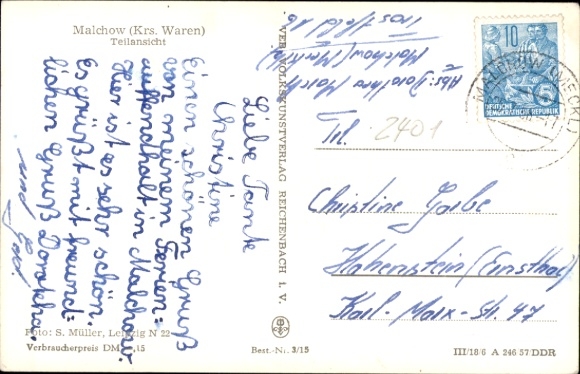 Malchow (Krs. Waren)
Teilansicht
Liebe Tante
Christine
Einen schönen Gruß
von meinem Ferien=
aufenthalt in Malchow.
Hier ist es sehr schön.
Es grüßt mit freund=
lichem Gruß Dorothea.
und
Foto: S. Müller, Leipzig N 22
Verbraucherpreis DM -,15
VEB VOLKSKUNSTVERLAG REICHENBACH I. V.
Best.-Nr. 3/15
Abs: Dorothea
Malchow (Meckl)
16
10
DEUTSCHE
DEMOKRATISCHE REPUBLIK
5
MALCHOW (MECKL)
Frl. 2401
Christine
Hohenstein (Ernstthal)
Karl-Marx-Str. 47
III/18/6 A 246 57 DDR